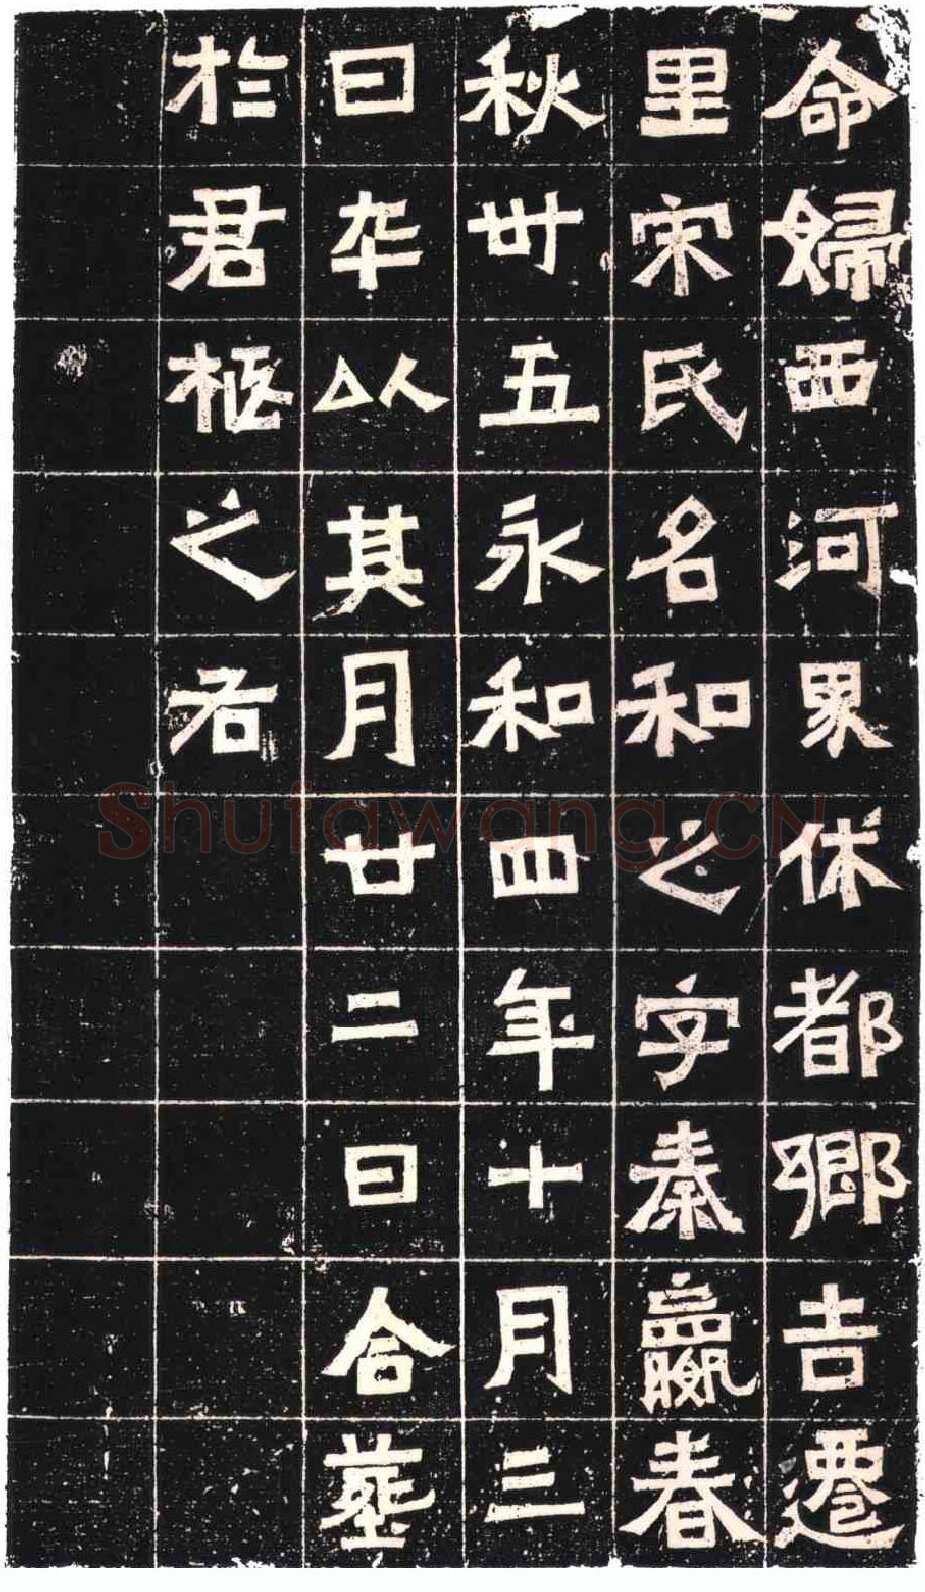 命婦西河界休都鄉吉遷
里宋氏名和之字秦嬴春
秋卅五永和四年十月三
日卒以其月廿二日合葬
於君柩之右
Shufawang.CN